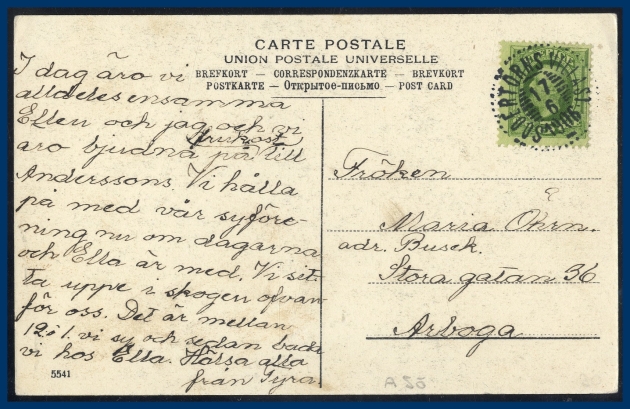 CARTE POSTALE
UNION POSTALE UNIVERSELLE
BREFKORT — CORRESPONDENZKARTE — BREVKORT
POSTKARTE — Открытое-письмо — POST CARD
I dag äro vi
alldeles ensamma
Ellen och jag och vi
äro bjudna på till
frukost
Anderssons. Vi hålla
på med vår syföre-
ning nu om dagarna
och Ella är med. Vi sit-
ta uppe i skogen ofvan-
för oss. Det är mellan
12 i 1. vi sy och sedan bada
vi hos Ella. Hälsa alla
från Tyra.
5541
17
6
Fröken
Maria Öhrn.
adr. Busck.
Stora gatan 36
Arboga
ÖZ A